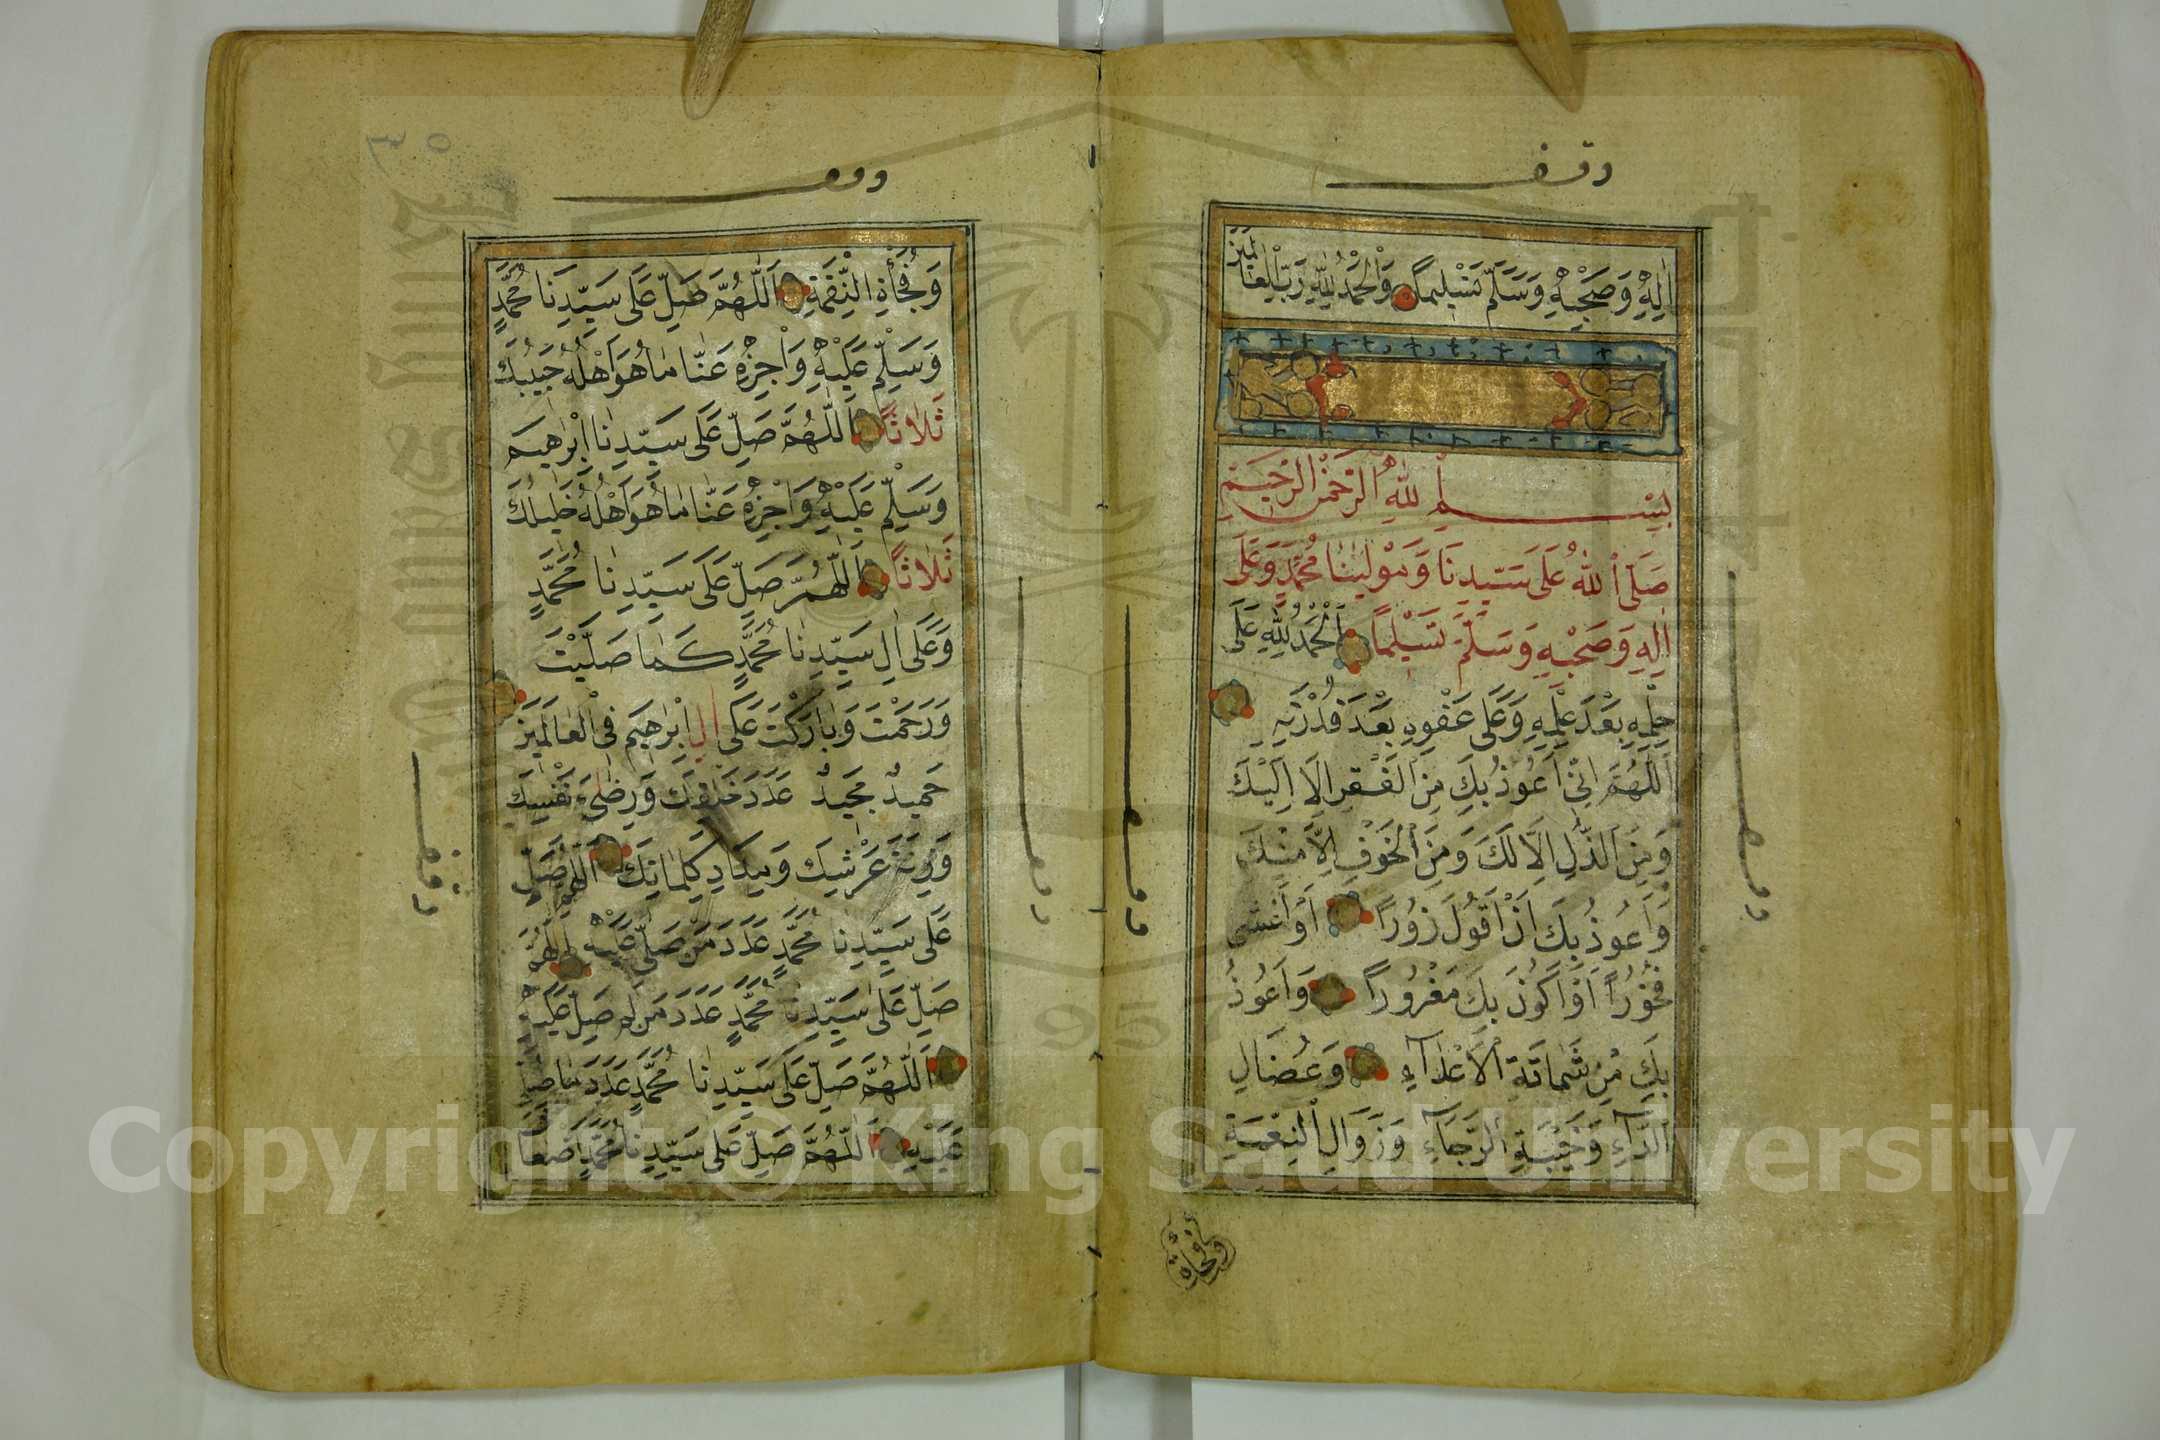 وقف
اٰلِهِ وَصَحْبِهِ وَسَلَّمَ تَسْلِيمًا وَالْحَمْدُ لِلّٰهِ رَبِّ الْعَالَمِينَ
بِسْمِ اللّٰهِ الرَّحْمٰنِ الرَّحِيمِ
صَلَّى اللّٰهُ عَلَى سَيِّدِنَا وَمَوْلَيٰنَا مُحَمَّدٍ وَعَلَى
اٰلِهِ وَصَحْبِهِ وَسَلَّمَ تَسْلِيمًا اَلْحَمْدُ لِلّٰهِ عَلَى
حِلْمِهِ بَعْدَ عِلْمِهِ وَعَلَى عَفْوِهِ بَعْدَ قُدْرَتِهِ
اَللّٰهُمَّ اِنِّي اَعُوذُ بِكَ مِنَ الْفَقْرِ اِلَّا اِلَيْكَ
وَمِنَ الذُّلِّ اِلَّا لَكَ وَمِنَ الْخَوْفِ اِلَّا مِنْكَ
وَاَعُوذُ بِكَ اَنْ اَقُولَ زُورًا اَوْ اَغْشٰى
فُجُورًا اَوْ اَكُونَ بِكَ مَغْرُورًا وَاَعُوذُ
بِكَ مِنْ شَمَاتَةِ الْاَعْدَآءِ وَعُضَالِ
الدَّآءِ وَخَيْبَةِ الرَّجَآءِ وَزَوَالِ النِّعْمَةِ
وفجأة
وقف
وقف
وقف
وَفُجْأَةِ النِّقْمَةِ اَللّٰهُمَّ صَلِّ عَلَى سَيِّدِنَا مُحَمَّدٍ
وَسَلِّمْ عَلَيْهِ وَاجْزِهِ عَنَّا مَا هُوَ اَهْلُهُ حَبِيبُكَ
ثَلَاثًا اَللّٰهُمَّ صَلِّ عَلَى سَيِّدِنَا اِبْرٰهِيمَ
وَسَلِّمْ عَلَيْهِ وَاجْزِهِ عَنَّا مَا هُوَ اَهْلُهُ خَلِيلُكَ
ثَلَاثًا اَللّٰهُمَّ صَلِّ عَلَى سَيِّدِنَا مُحَمَّدٍ
وَعَلَى اٰلِ سَيِّدِنَا مُحَمَّدٍ كَمَا صَلَّيْتَ
وَرَحِمْتَ وَبَارَكْتَ عَلَى اٰلِ اِبْرٰهِيمَ فِي الْعَالَمِينَ
حَمِيدٌ مَجِيدٌ عَدَدَ خَلْقِكَ وَرِضَى نَفْسِكَ
وَزِنَةَ عَرْشِكَ وَمِدَادَ كَلِمَاتِكَ اَللّٰهُمَّ صَلِّ
عَلَى سَيِّدِنَا مُحَمَّدٍ عَدَدَ مَنْ صَلَّى عَلَيْهِ اَللّٰهُمَّ
صَلِّ عَلَى سَيِّدِنَا مُحَمَّدٍ عَدَدَ مَنْ لَمْ يُصَلِّ عَلَيْهِ
اَللّٰهُمَّ صَلِّ عَلَى سَيِّدِنَا مُحَمَّدٍ عَدَدَ مَا صُلِّيَ
عَلَيْهِ اَللّٰهُمَّ صَلِّ عَلَى سَيِّدِنَا مُحَمَّدٍ اَضْعَافَ
وقف
وقف
Copyright © King Saud University